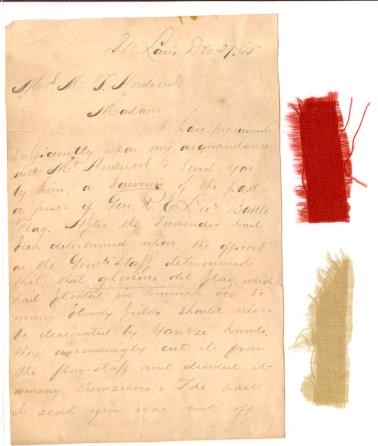 St Louis Dec 27, 65
Mrs M. T. Andrews
Madam
I have presumed
sufficiently upon my acquaintance
with Mr Andrews to send you
by him, a souvenir of the past-
a piece of Gen. R E Lee's Battle
Flag. After the surrender had
been determined upon, the officers
on the Genl's Staff determined
that that glorious old flag, which
had floated in triumph over so
many bloody fields should never
be desecrated by Yankee hands.
they accordingly cut it from
the flag-staff and divided it
among themselves. The part
I send you was cut off